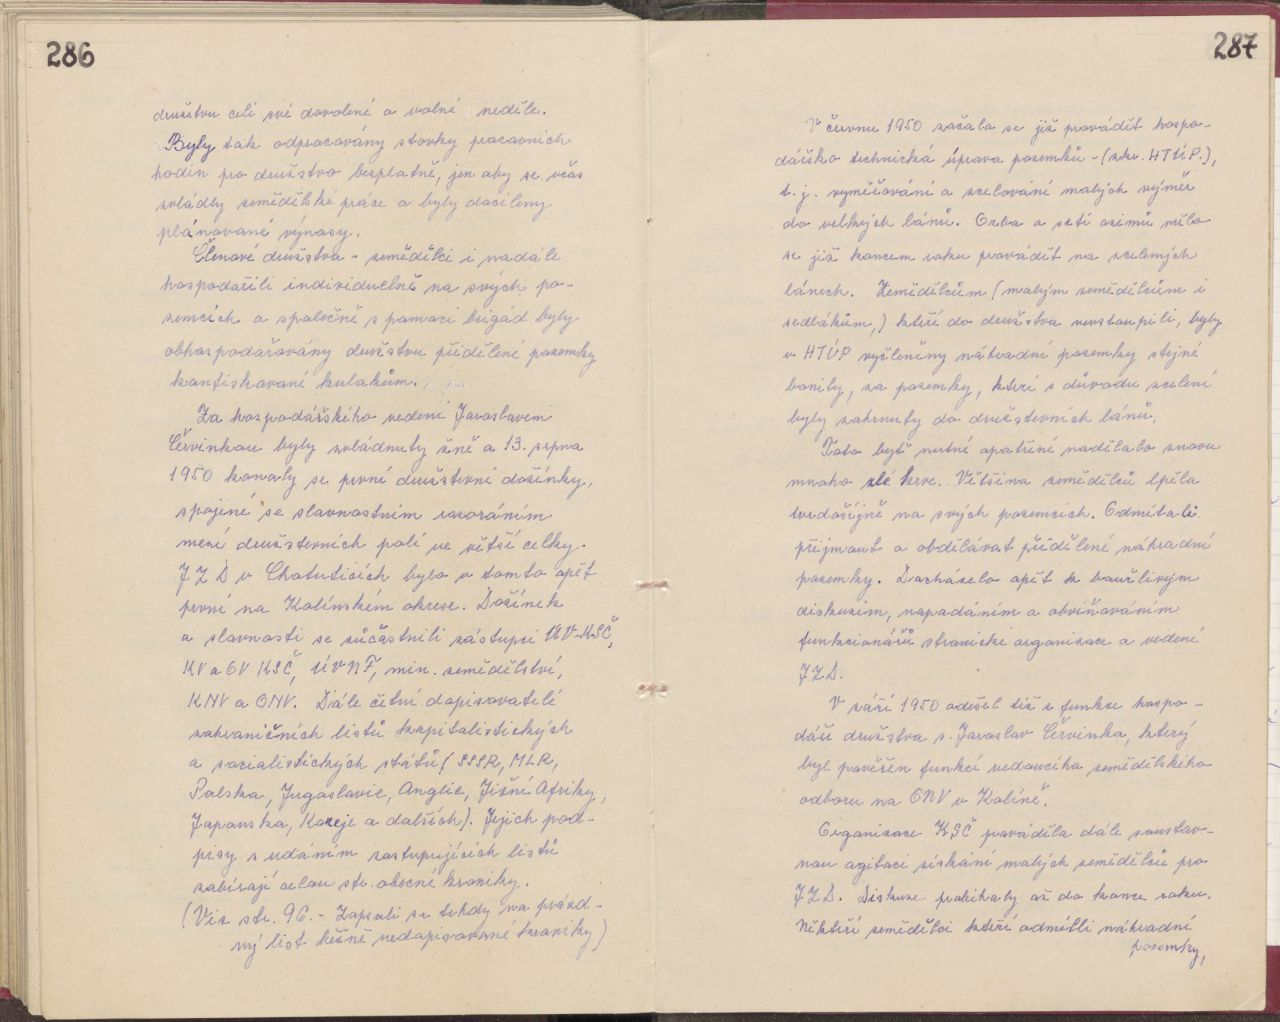 286
družstvu celé své dovolené a volné neděle.
Byly tak odpracovány stovky pracovních
hodin pro družstvo bezplatně, jen aby se včas
zvládly zemědělské práce a byly docíleny
plánované výnosy.
Členové družstva - zemědělci i nadále
hospodařili individuelně na svých po-
zemcích a společně s pomocí brigád byly
obhospodařovány družstvu přidělené pozemky
konfiskované kulakům.
Za hospodářského vedení Jaroslavem
Červinkou byly zvládnuty žně a 13. srpna
1950 konaly se první družstevní dožínky,
spojené se slavnostním rozoráním
mezí družstevních polí ve větší celky.
JZD v Chotuticích bylo v tomto opět
první na Kolínském okrese. Dožínek
a slavnosti se zúčastnili zástupci ÚV-KSČ,
KV a OV KSČ, ÚV NF, min. zemědělství,
KNV a ONV. Dále četní dopisovatelé
zahraničních listů kapitalistických
a socialistických států (SSSR, MLR,
Polska, Jugoslavie, Anglie, Jižní Afriky,
Japonska, Koreje a dalších). Jejich pod-
pisy s udáním zastupujících listů
zabírají celou str. obecné kroniky.
(Viz str. 96. - Zapsali se tehdy na prázd-
ný list běžně nedopisované kroniky)
287
V červnu 1950 začala se již provádět hospo-
dářsko technická úprava pozemků - (zkr. HTÚP.),
t. j. vyměřování a scelování malých výměr
do velkých lánů. Orba a setí ozimů mělo
se již koncem roku provádět na scelených
lánech. Zemědělcům (malým zemědělcům i
sedlákům,) kteří do družstva nevstoupili, byly
v HTÚP vyčleněny náhradní pozemky stejné
bonity, za pozemky, které z důvodu scelení
byly zahrnuty do družstevních lánů.
Toto byť nutné opatření nadělalo znovu
mnoho zlé krve. Většina zemědělců lpěla
tvrdošíjně na svých pozemcích. Odmítali
přijmout a obdělávat přidělené náhradní
pozemky. Docházelo opět k bouřlivým
diskuzím, napadáním a obviňováním
funkcionářů stranické organizace a vedení
JZD.
V září 1950 odešel též z funkce hospo-
dáře družstva s. Jaroslav Červinka, který
byl pověřen funkcí vedoucího zemědělského
odboru na ONV v Kolíně.
Organizace KSČ prováděla dále soustav-
nou agitaci získání malých zemědělců pro
JZD. Diskuze probíhaly až do konce roku.
Někteří zemědělci kteří odmítli náhradní
pozemky,